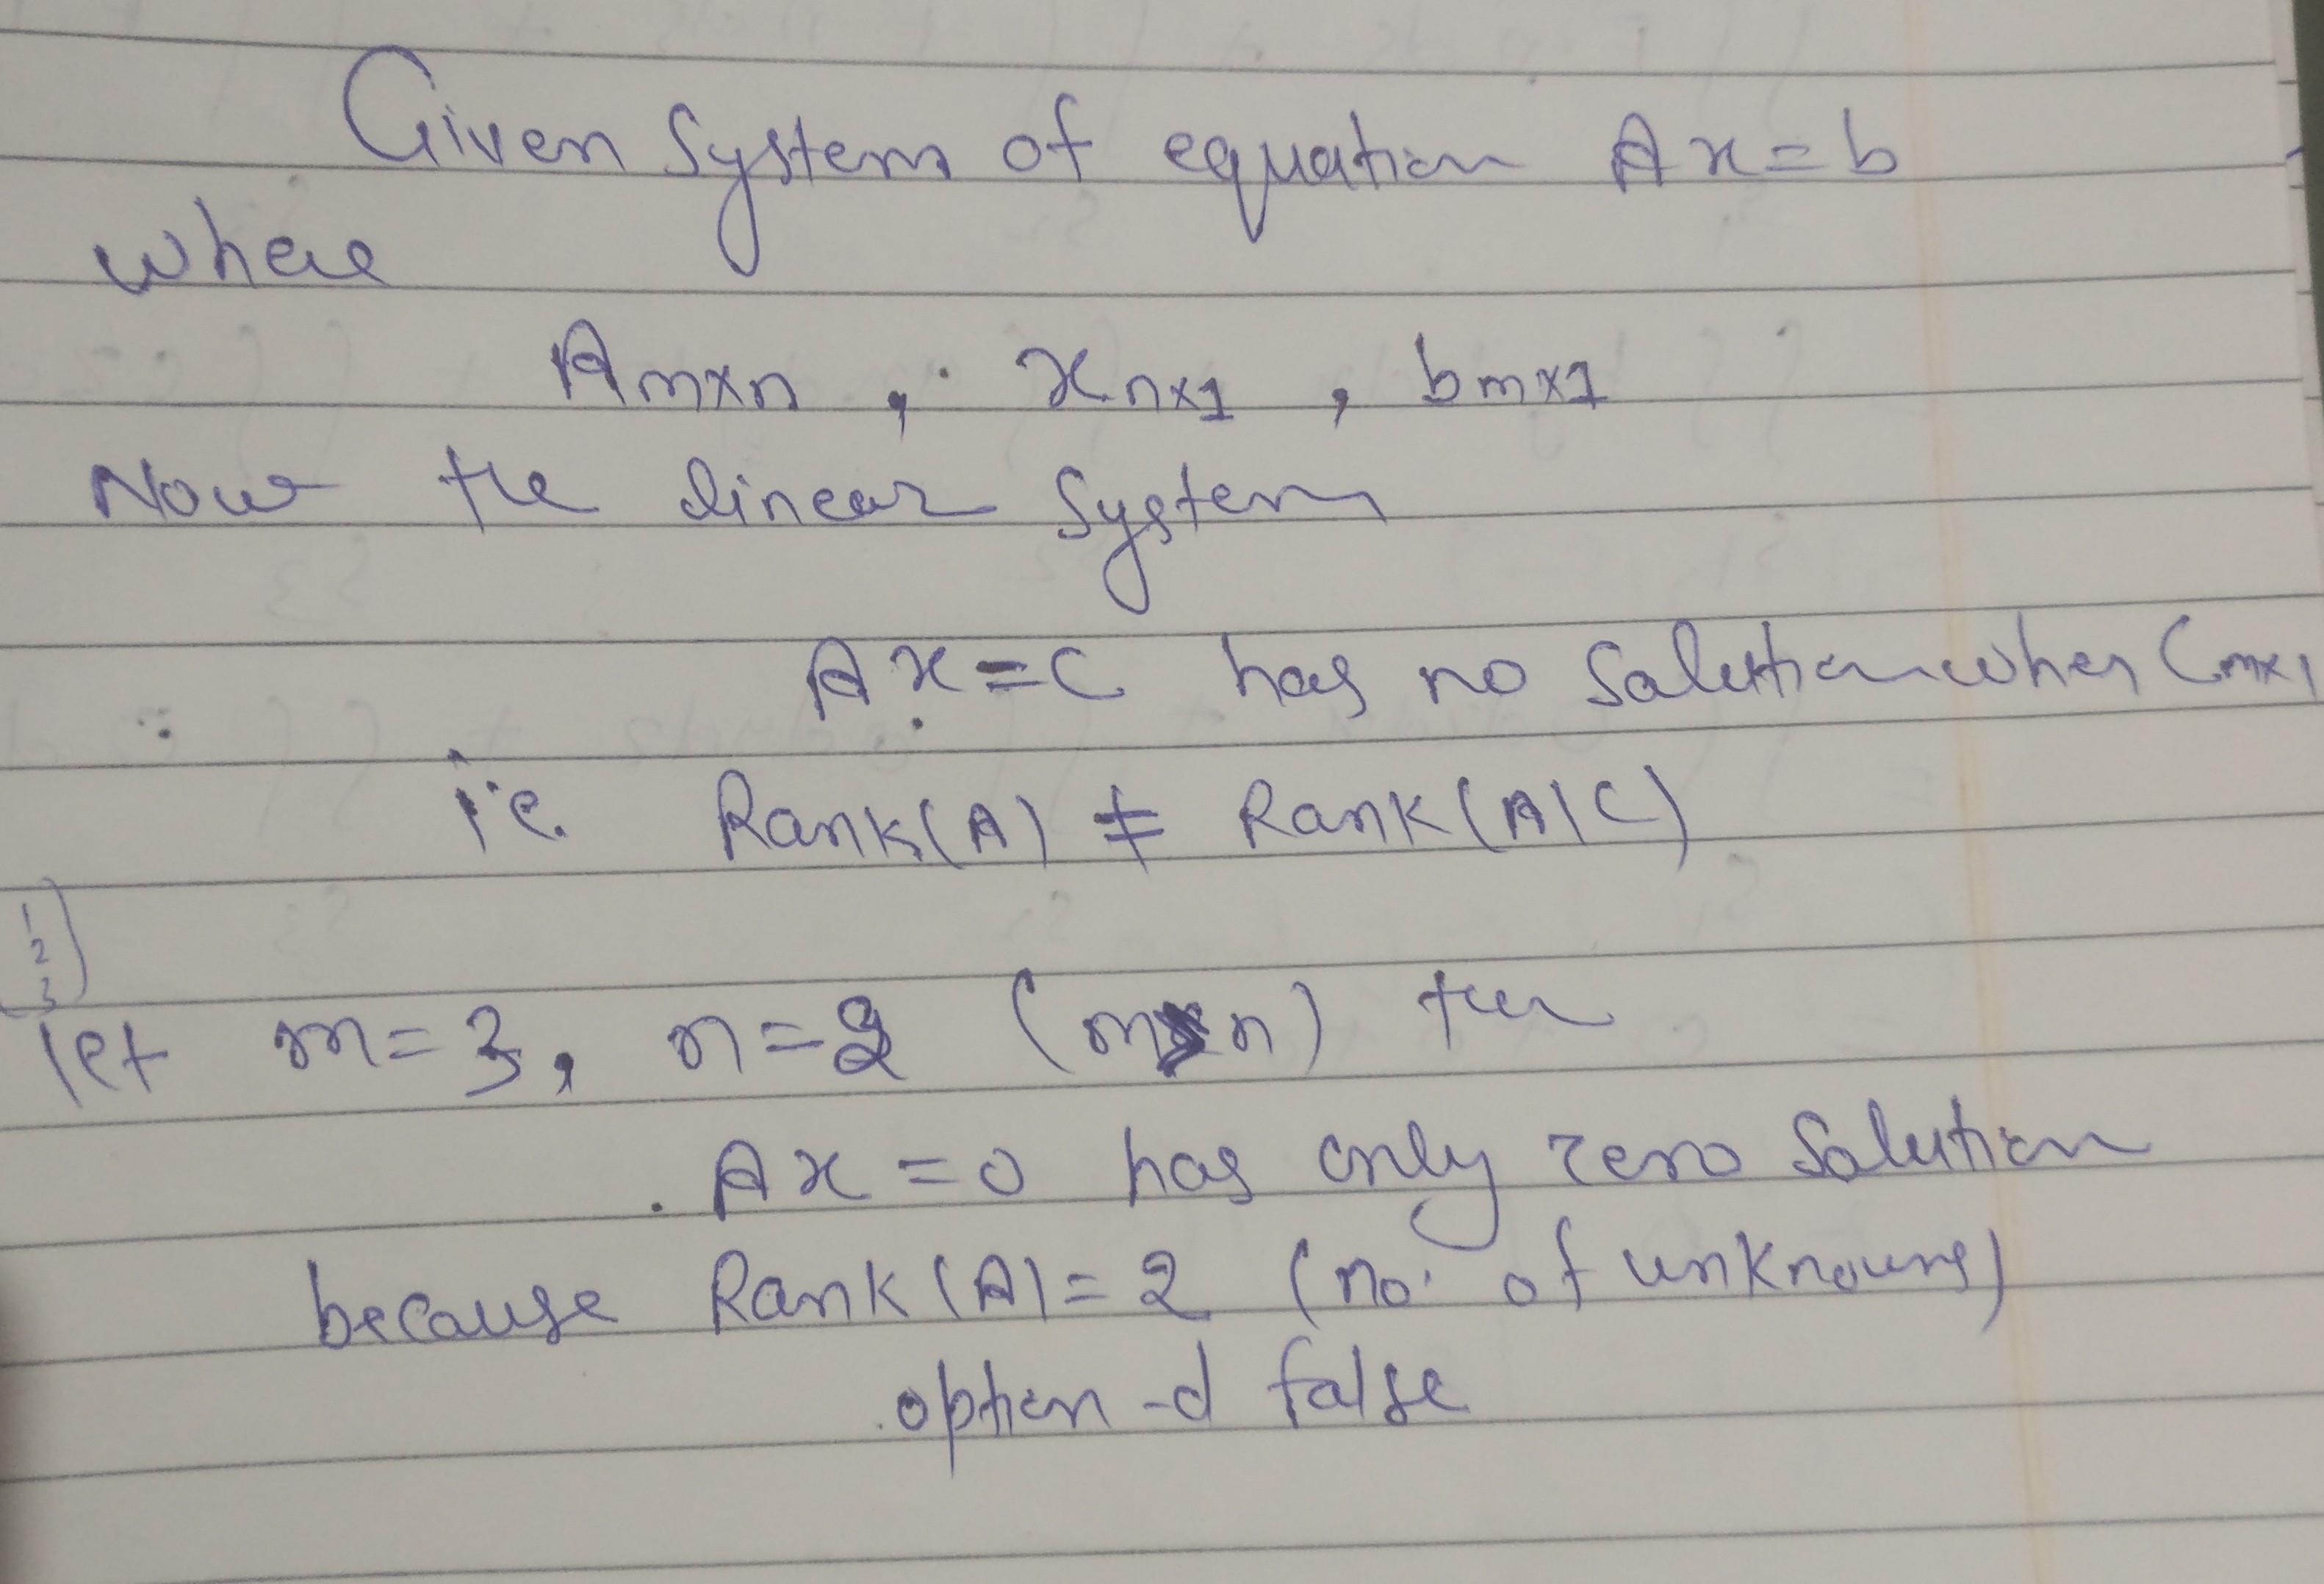 Given System of equation Ax=b
where
Amxn , xnx1 , bmx1
Now the linear System
Ax=C has no Solution when Cmx1
i.e. Rank(A) ≠ Rank(A|C)
1
2
3
let m=3, n=2 (m>n) then
Ax=0 has only zero Solution
because Rank(A)=2 (no. of unknowns)
option-d false